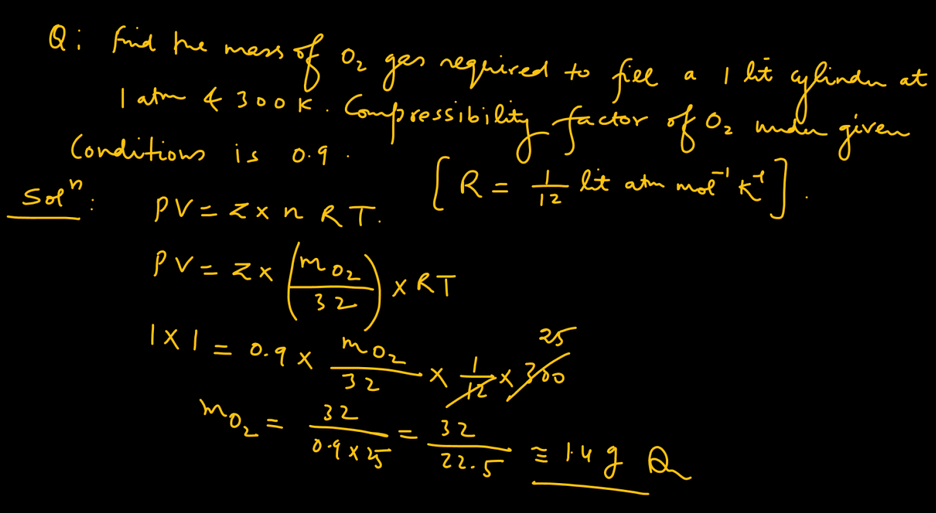 Q: find the mass of O₂ gas required to fill a 1 lit cylinder at
1 atm & 300K. Compressibility factor of O₂ under given
Conditions is 0.9.
[R = 1/12 lit atm mol⁻¹ K⁻¹].
Solⁿ:
PV = Z × n R T.
PV = Z × (m O₂ / 32) × RT
1 × 1 = 0.9 × m O₂ / 32 × 1/12 × 300 25
m O₂ = 32 / 0.9 × 25 = 32 / 22.5 ≅ 1.4 g